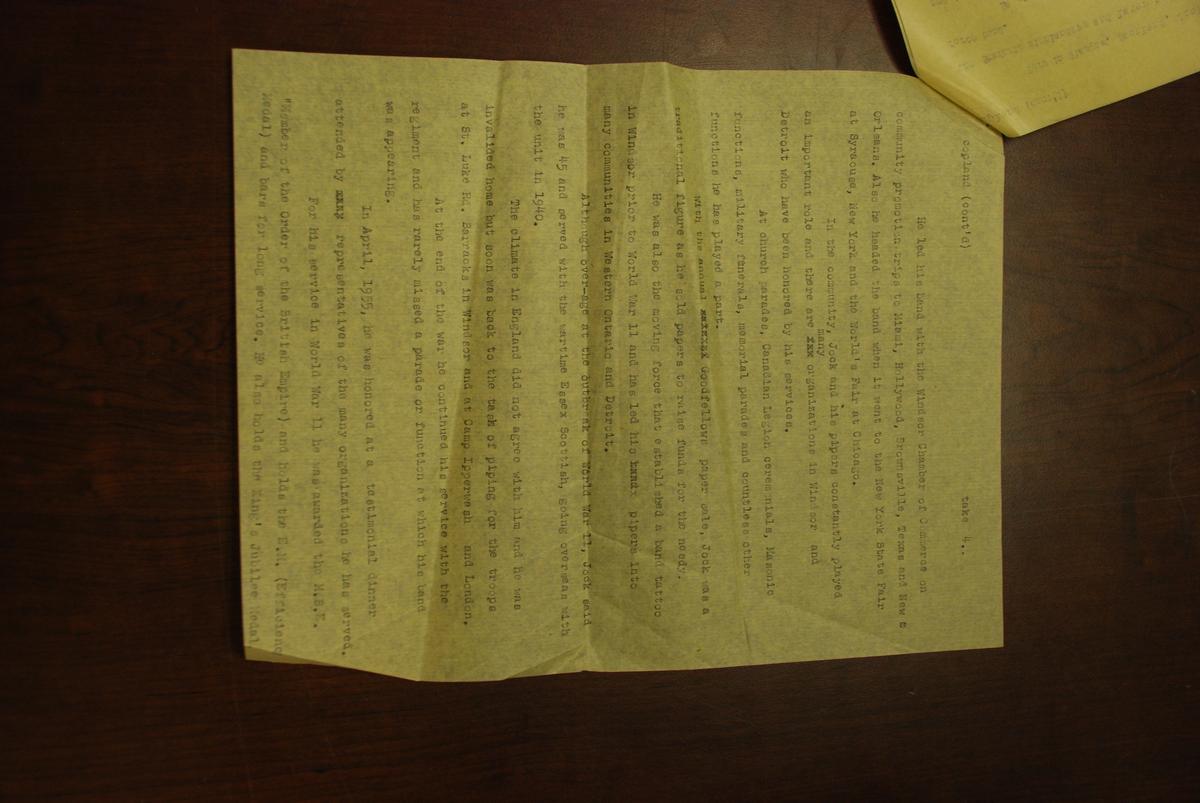 copland (cont'd) take 4..
He led his band with the Windsor Chamber of Commerce on
community promotion trips to Miami, Hollywood, Brownsville, Texas and New
Orleans. Also he headed the band when it went to the New York State Fair
at Syracuse, New York and the World's Fair at Chicago.
In the community, Jock and his pipers constantly played
many
an important role and there are xxx organizations in Windsor and
Detroit who have been honored by his services.
At church parades, Canadian Legion ceremonials, Masonic
functions, military funerals, memorial parades and countless other
functions he has played a part.
With the annual Goodfellows paper sale, Jock was a
traditional figure as he sold papers to raise funds for the needy.
He was also the moving force that established a band tattoo
in Windsor prior to World War 11 and has led his pipers into
many communities in Western Ontario and Detroit.
Although over-age at the outbreak of World War 11, Jock said
he was 45 and served with the wartime Essex Scottish, going overseas with
the unit in 1940.
The climate in England did not agree with him and he was
invalided home but soon was back to the task of piping for the troops
at St. Luke Rd. Barracks in Windsor and at Camp Ipperwash and London.
At the end of the war he continued his service with the
regiment and has rarely missed a parade or function at which his band
was appearing.
In April, 1955, he was honored at a testimonial dinner
attended by representatives of the many organizations he has served.
For his service in World War 11 he was awarded the M.B.E.
"Member of the Order of the British Empire) and holds the E.M. (Efficienc
Medal) and bars for long service. He also holds the King's Jubilee Medal